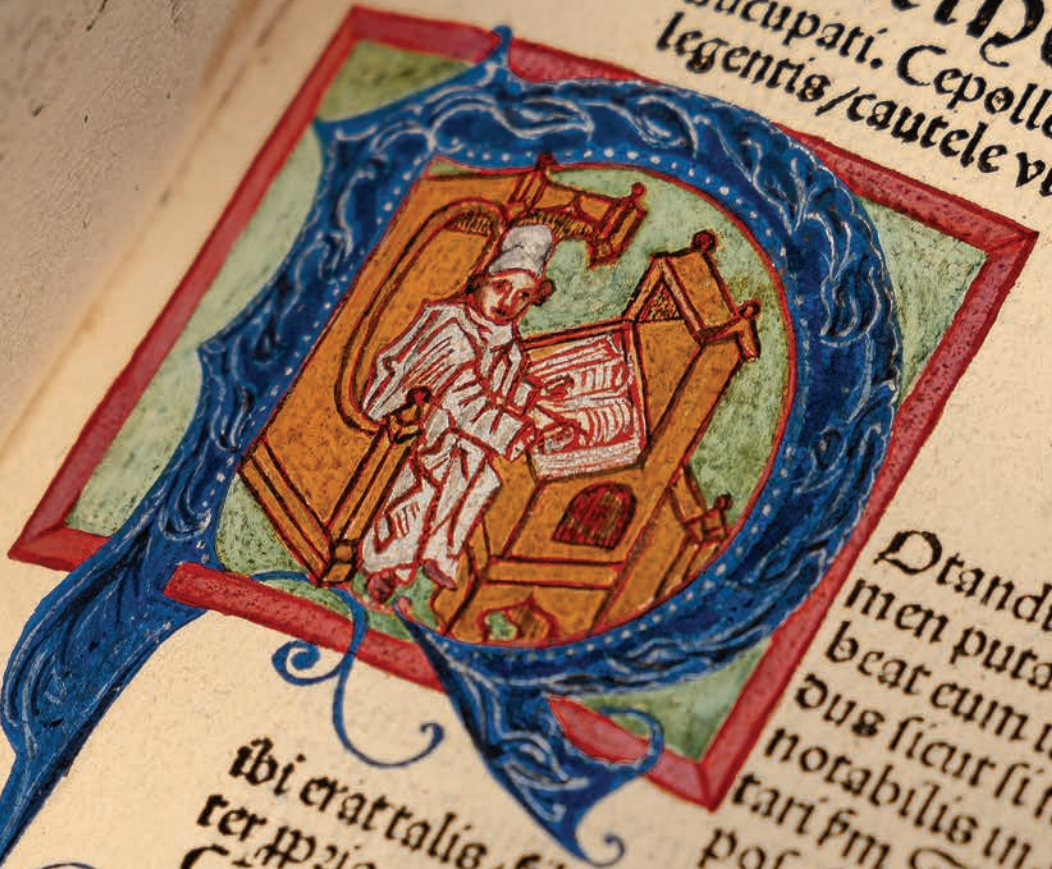 cucupati. Cepoll
legentis/cautele v
P
Otand
men puta
beat eum
dus sicut si
notabilis in
tari
pos
ibi erat talis
ter